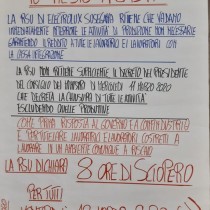 LA RSU DI ELECTROLUX SUSEGANA RITIENE CHE VADANO
IMMEDIATAMENTE INTERROTTE LE ATTIVITÀ DI PRODUZIONE NON NECESSARIE
GARANTENDO IL REDDITO A TUTTE LE LAVORATRICI ED I LAVORATORI CON
LA CASSA INTEGRAZIONE
LA RSU NON RITIENE SUFFICIENTE IL DECRETO DEL PRESIDENTE
DEL CONSIGLIO DEI MINISTRI DI MERCOLEDÌ 11 MARZO 2020
CHE DECRETA LA CHIUSURA DI TUTTE LE ATTIVITÀ
ESCLUDENDO QUELLE PRODUTTIVE
COME PRIMA RISPOSTA AL GOVERNO E A CONFINDUSTRIA
E PER TUTELARE LAVORATRICI E LAVORATORI COSTRETTI A
LAVORARE IN UN AMBIENTE COMUNQUE A RISCHIO
LA RSU DICHIARA 8 ORE DI SCIOPERO
PER TUTTI